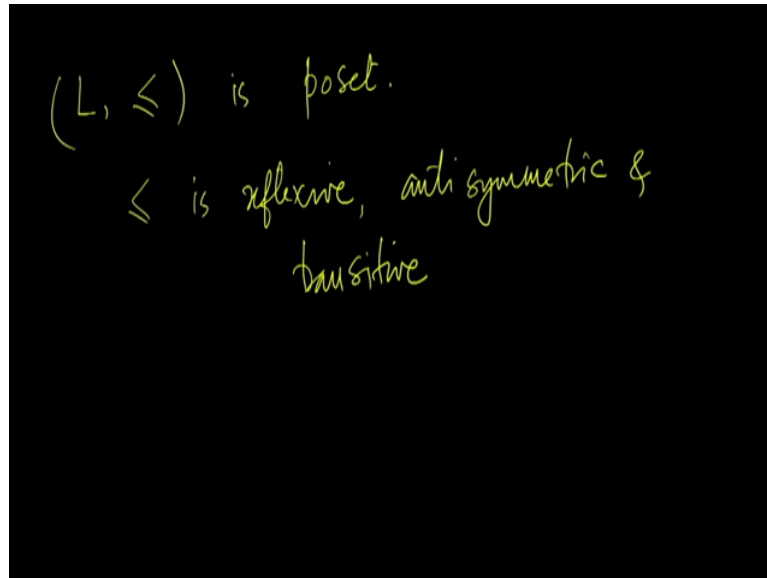 (L, ≤) is poset.
≤ is reflexive, anti symmetric &
transitive